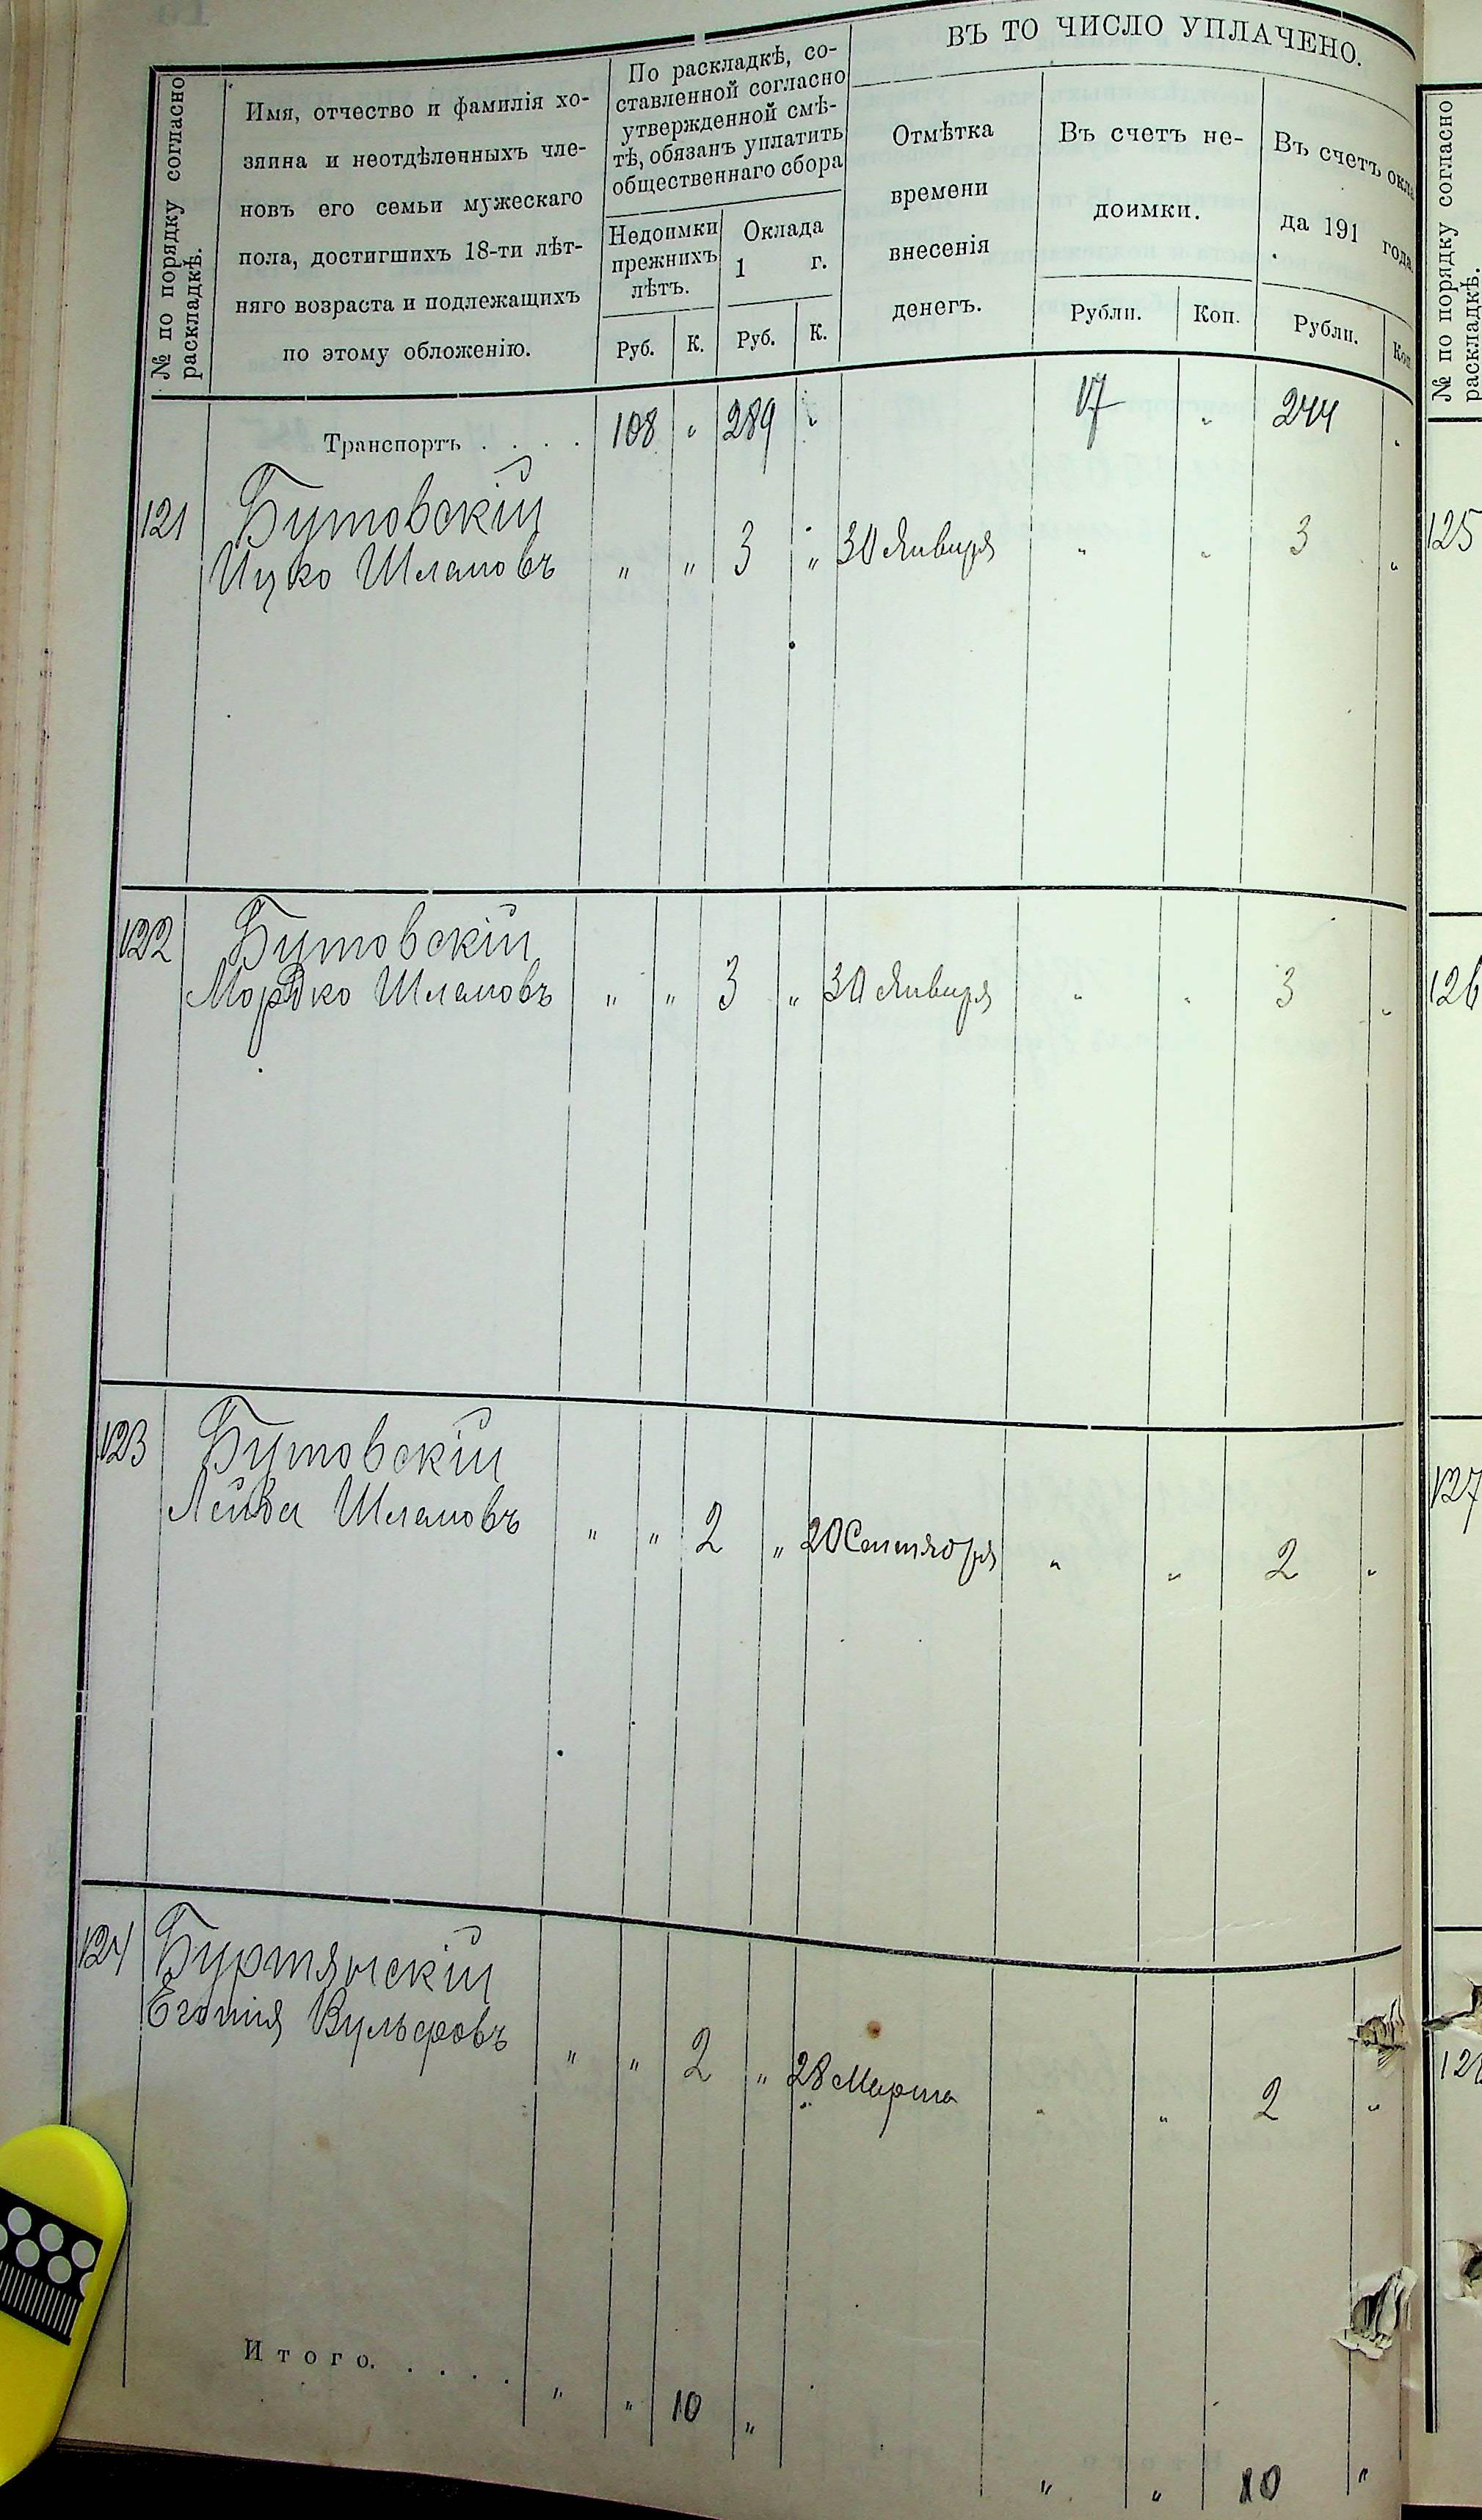 ВЪ ТО ЧИСЛО УПЛАЧЕНО.
№ по порядку согласно
раскладкѣ.
Имя, отчество и фамилія хо-
зяина и неотдѣленныхъ чле-
новъ его семьи мужескаго
пола, достигшихъ 18-ти лѣт-
няго возраста и подлежащихъ
по этому обложенію.
По раскладкѣ, со-
ставленной согласно
утвержденной смѣ-
тѣ, обязанъ уплатить
общественнаго сбора
Недоимки
прежнихъ
лѣтъ.
Оклада
1 г.
Руб. К. Руб. К.
Отмѣтка
времени
внесенія
денегъ.
Въ счетъ не-
доимки.
Рубли. Коп.
Въ счетъ окла
да 191 года.
Рубли. Коп
Транспортъ . . . . 108 „ 289 „ 17 „ 244 „
121 Бутовскій
Ицко Шлемовъ „ „ 3 „ 30 Января „ „ 3 „
122 Бутовскій
Мордко Шлемовъ „ „ 3 „ 30 Января „ „ 3 „
123 Бутовскій
Лейба Шлемовъ „ „ 2 „ 20 Сентября „ „ 2 „
124 Буртянскій
Вульфовъ „ „ 2 „ 28 Марта „ „ 2 „
Итого. . . . . „ „ 10 „
„ „ 10 „
№ по порядку согласно
раскладкѣ.
125
126
127